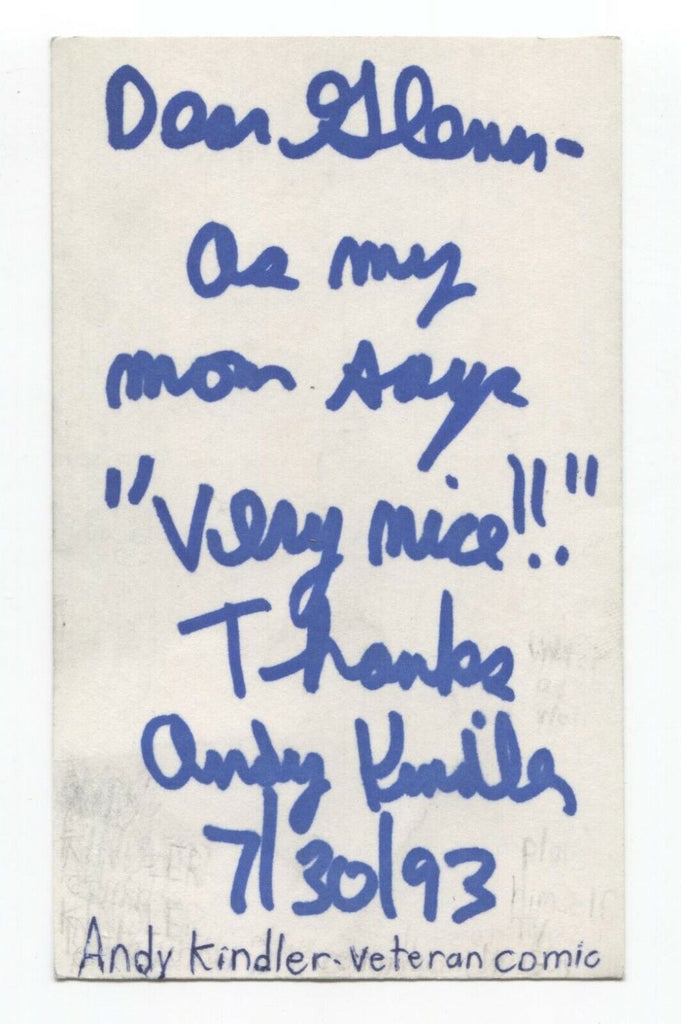 Dear Glenn-
as my
mom says
"Very nice!!"
Thanks
Andy Kindler
7/30/93
Andy Kindler-veteran comic